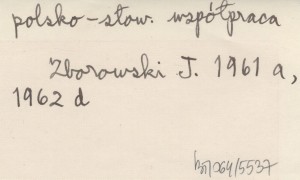 polsko-słow. współpraca
Zborowski J. 1961 a,
1962 d
bn/264/5537